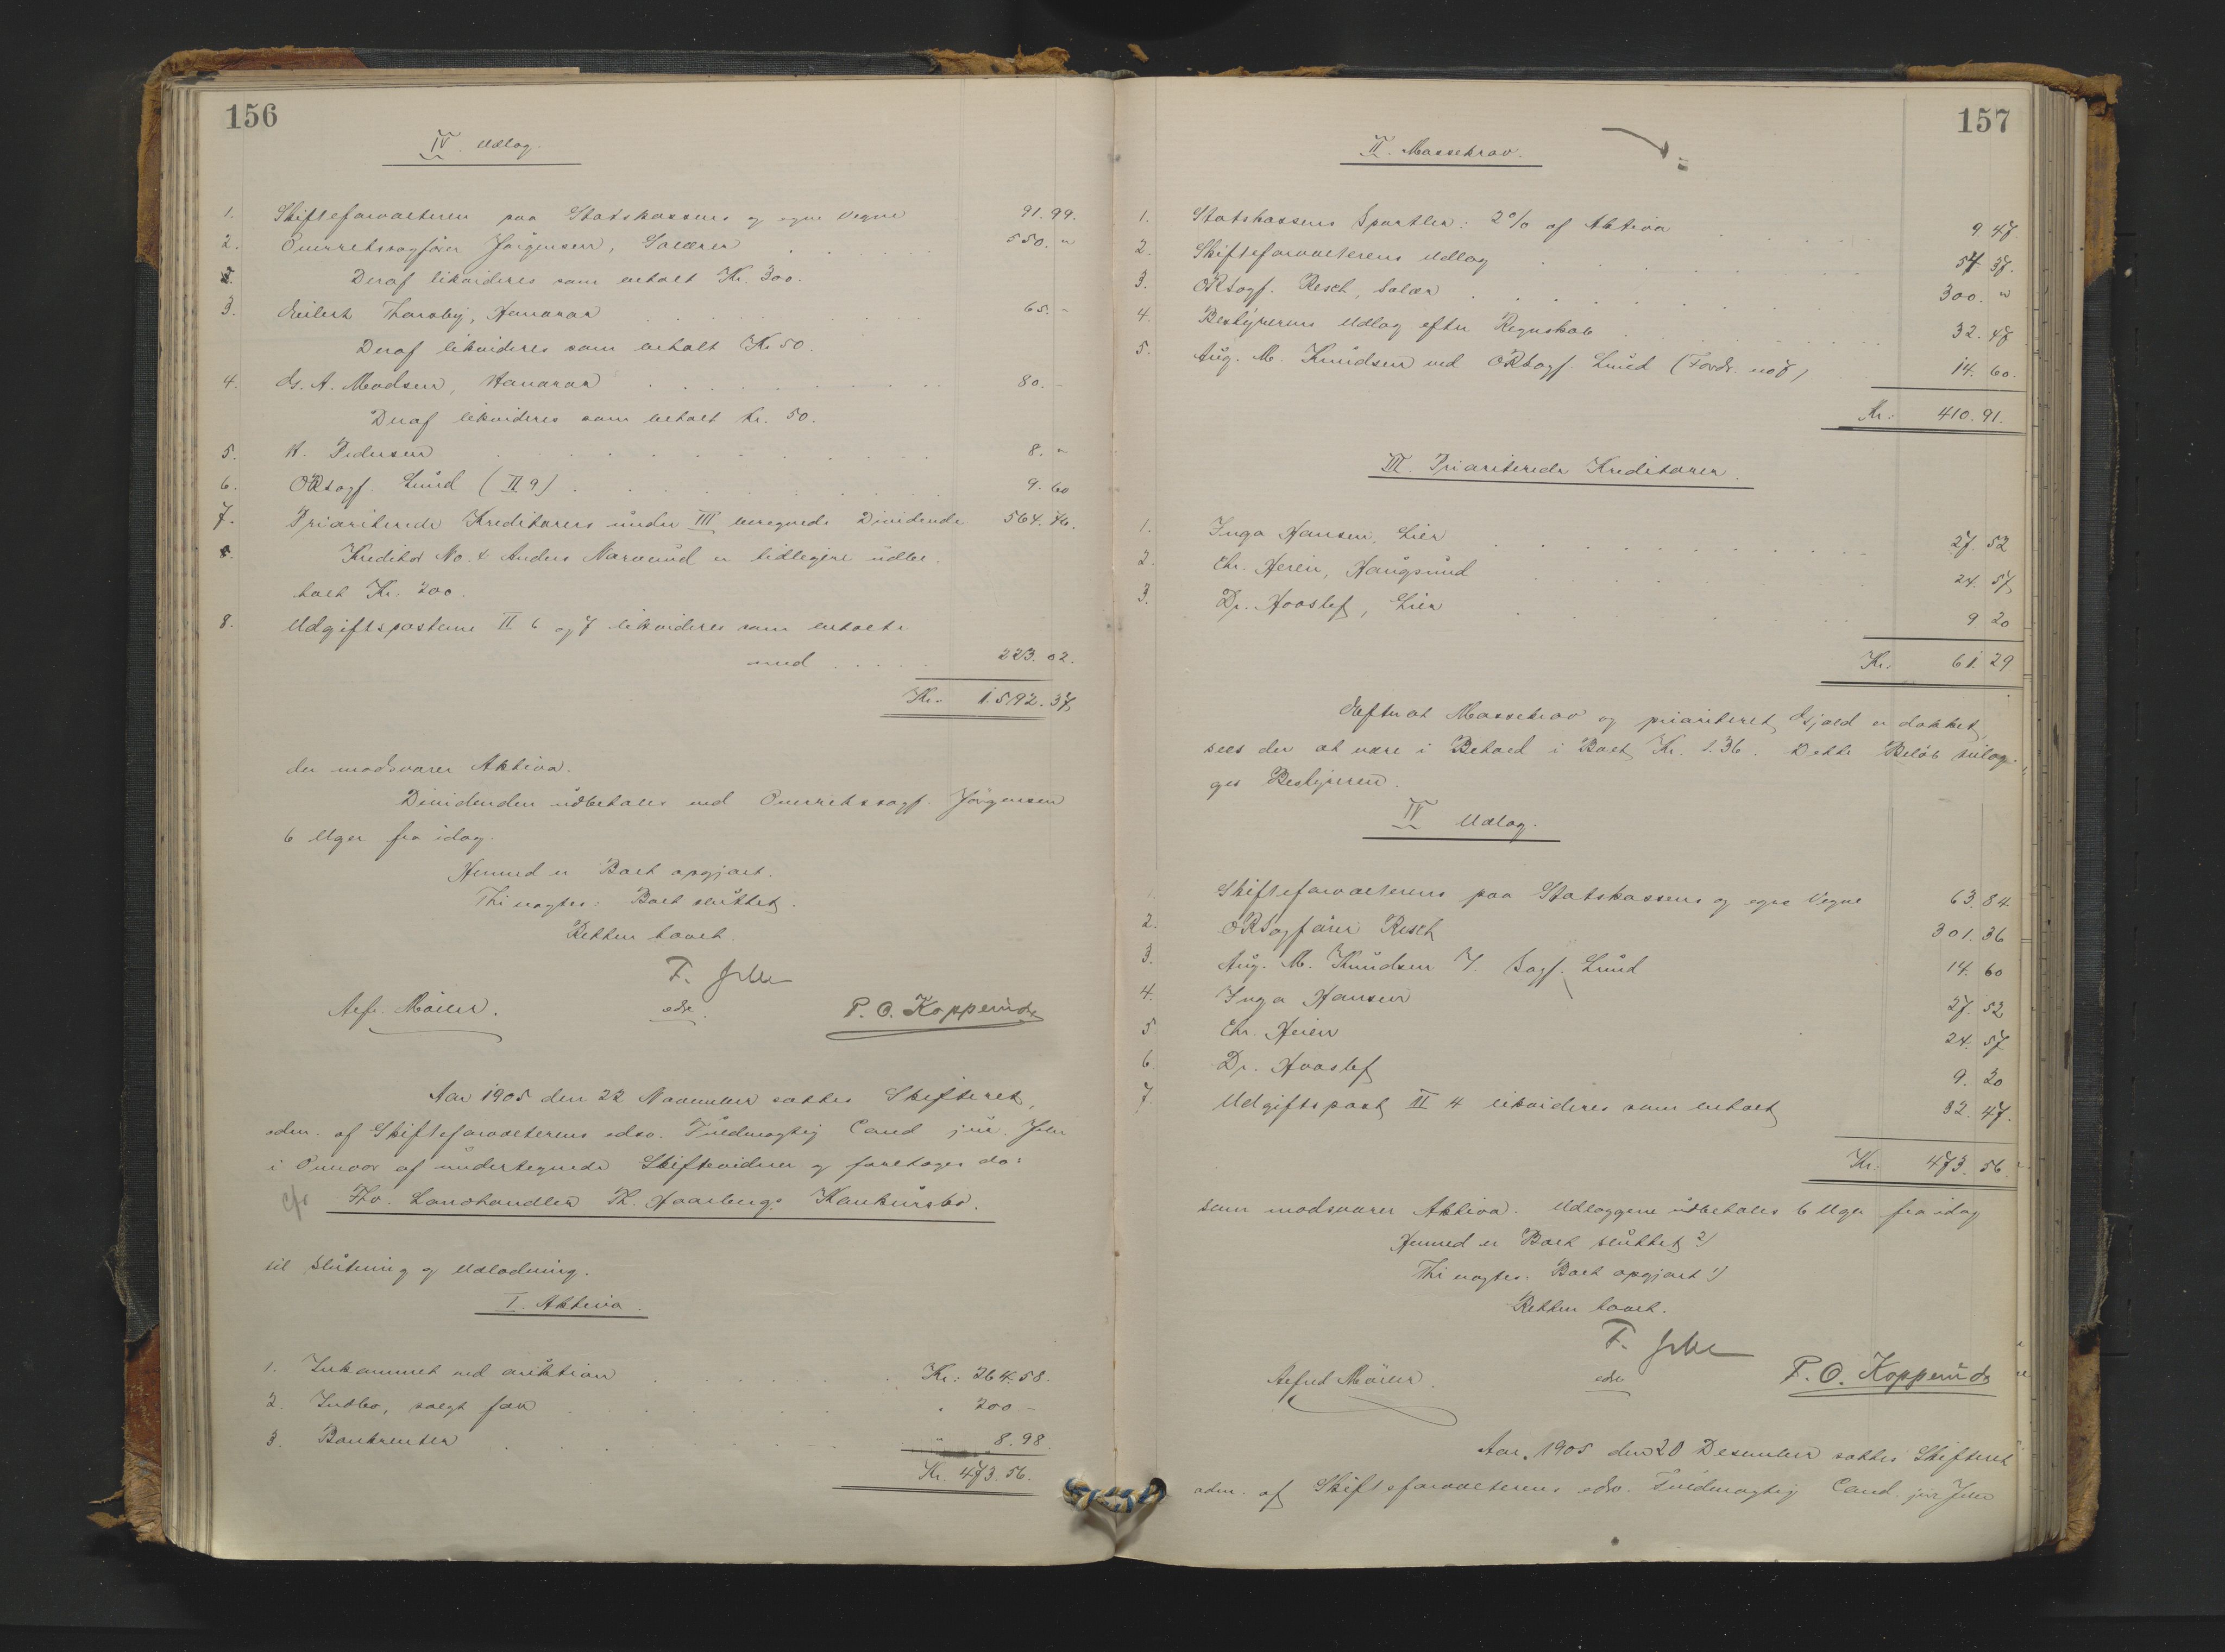 156
IV. Udlæg.
1. Skifteforvalteren paa Statskassens og egne Vegne 91.99.
2. Overretssagfører Jørgensen, Salær 550.„
Deraf likvideres som erholdt Kr. 300.
3. Eilert Thoroby, Honorar 65.-
Deraf likvideres som erholdt Kr 50.
4. G. A. Madsen, Honorar 80.-
Deraf likvideres som erholdt Kr. 50.
5. A. Pedersen 8.„
6. ORsagf. Lund (II 9) 9.60
7. Prioriterede Kreditorers under III beregnede Dividende 564.76.
Kreditor No. 4 Anders Narverud er tidligere udbe-
talt Kr. 200.
8. Udgiftsposterne II 6 og 7 likvideres som erholdte
med 223.02.
Kr. 1592.37
der modsvarer Aktiva.
Dividenden udbetales ved Overretssagf. Jørgensen
6 Uger fra idag.
Hermed er Boet opgjort.
Thi vagtes: Boet sluttet.
Retten hævet.
Alfr. Møller. edsv. P. O. Kopperud
Aar 1905 den 22 November sattes Skifteret,
adm. af Skifteforvalterens edsv. Fuldmægtig Cand jur.
i Overvær af undertegnede Skiftevidner og foretoges da:
Fhv. Landhandler Th. Haarbergs Konkursbo.
til Slutning og Udlodning.
I. Aktiva.
1. Indkommet ved auktion Kr: 264.58.
2. Indbo, solgt for „ 200.-
3. Bankrenter „ 8.98.
Kr. 473.56.
157
II. Massekrav.
1. Statskassens Sportler: 2% af Aktiva 9 47.
2. Skifteforvalterens Udlæg 54 37.
3. ORSagf. Resch, Salær 300.„
4. Bestyrerens Udlæg efter Regnskab 32.47
5. Aug. M. Knudsen ved ORSagf. Lund (Fordr. no 7) 14.60.
Kr: 410.91.
III. Prioriterede Kreditorer.
1. Inga Hansen, Lier 27.52
2. Chr. Heien, Haugsund 24.57
3. Dr. Hovslef, Lier 9 20
Kr. 61.29
Efterat Massekrav og prioriteret Gjæld er dækket,
sees der at være i Behold i Boet Kr. 1.36. Dette Beløb tillæg-
ges Bestyreren.
IV Udlæg.
1. Skifteforvalterens paa Statskassens og egne Vegne 63.84
2. ORSagfører Resch 301.36
3. Aug. M. Knudsen v. Sagf. Lund 14.60
4. Inga Hansen 27.52
5 Chr. Heien 24.57
6 Dr. Hovslef 9.20
7. Udgiftspost II 4 likvideres som erholdt 32.47.
Kr. 473.56
som modsvarer Aktiva. Udlæggene udbetales 6 Uger fra idag
Hermed er Boet sluttet 2)
Thi vagtes: Boet opgjort 1)
Retten hævet.
Alfred Møller. edsv P. O. Kopperud
Aar 1905 den 20 Desember sattes Skifteret
adm. af Skifteforvalterens edsv. Fuldmægtig Cand. jur